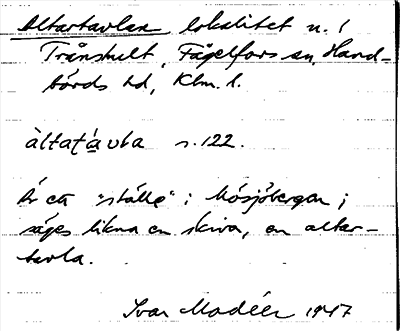 Altartavlan lokalitet n. i
Trånshult, Fågelfors sn, Hand-
börds hd, Klm. l.
àltat́avla s. 122.
Är ett "ställe" i Mösjöbergen;
säges likna en skiva, en altar-
tavla.
Ivar Modéer 1947